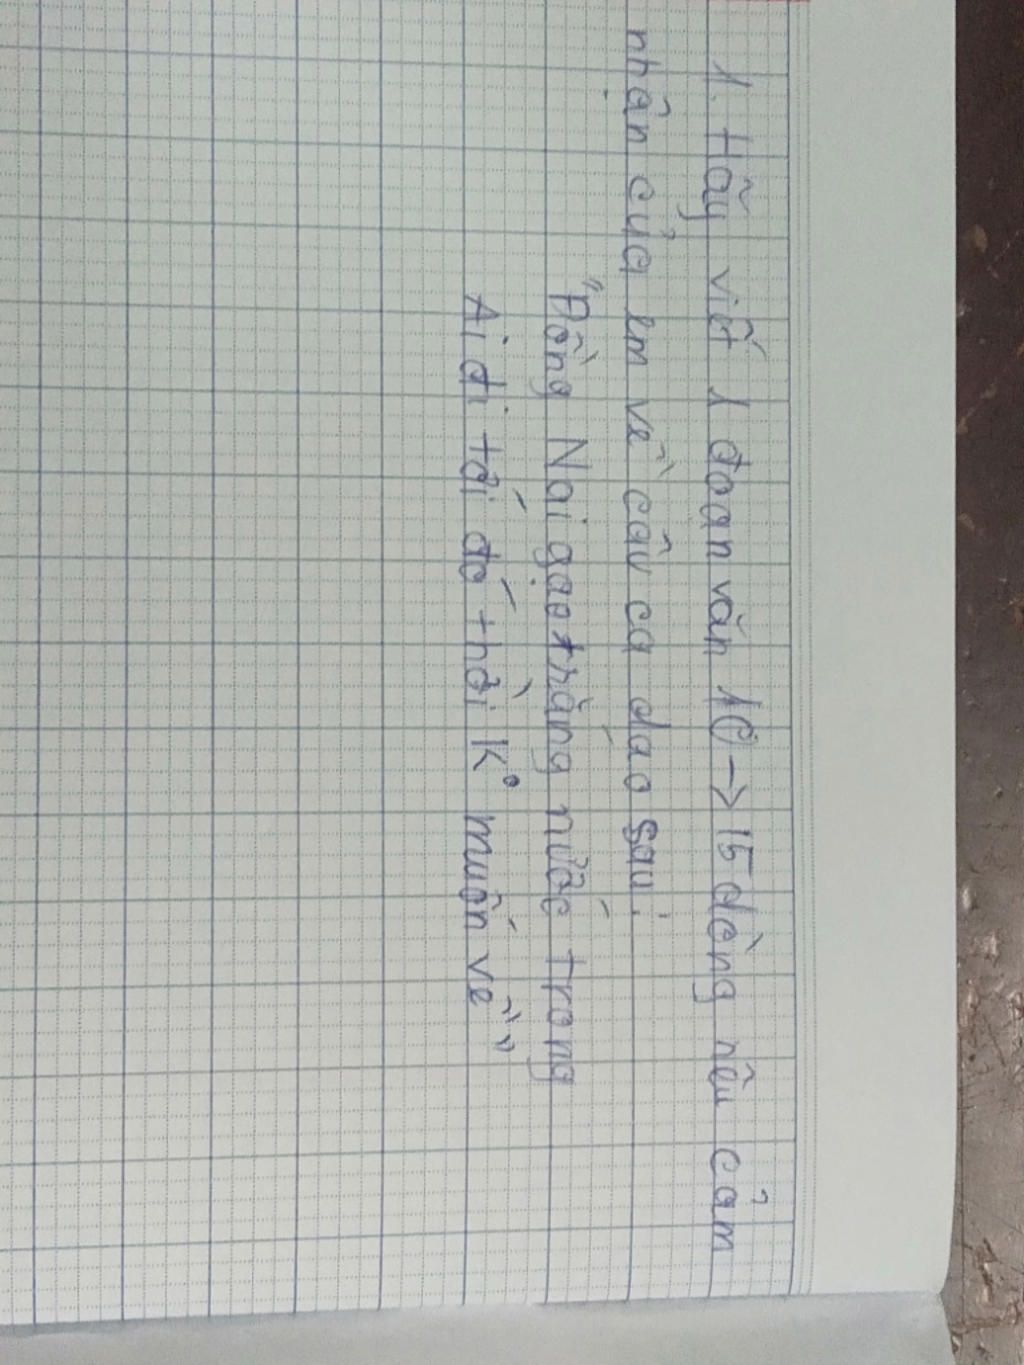 1. Hãy viết 1 đoan văn 10 → 15 dòng nêu cảm
nhận của em về câu ca dao sau:
"Đồng Nai gạo trắng nước trong
Ai đi tới đó thời K° muốn về"